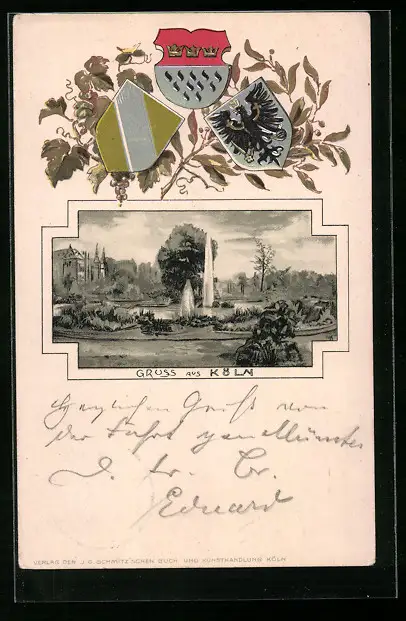 GRUSS AUS KÖLN
Herzlichen Gruß von
der Fahrt gen Münster
D. tr. Br.
Eduard
VERLAG DER J.G. SCHMITZ'SCHEN BUCH- UND KUNSTHANDLUNG KÖLN